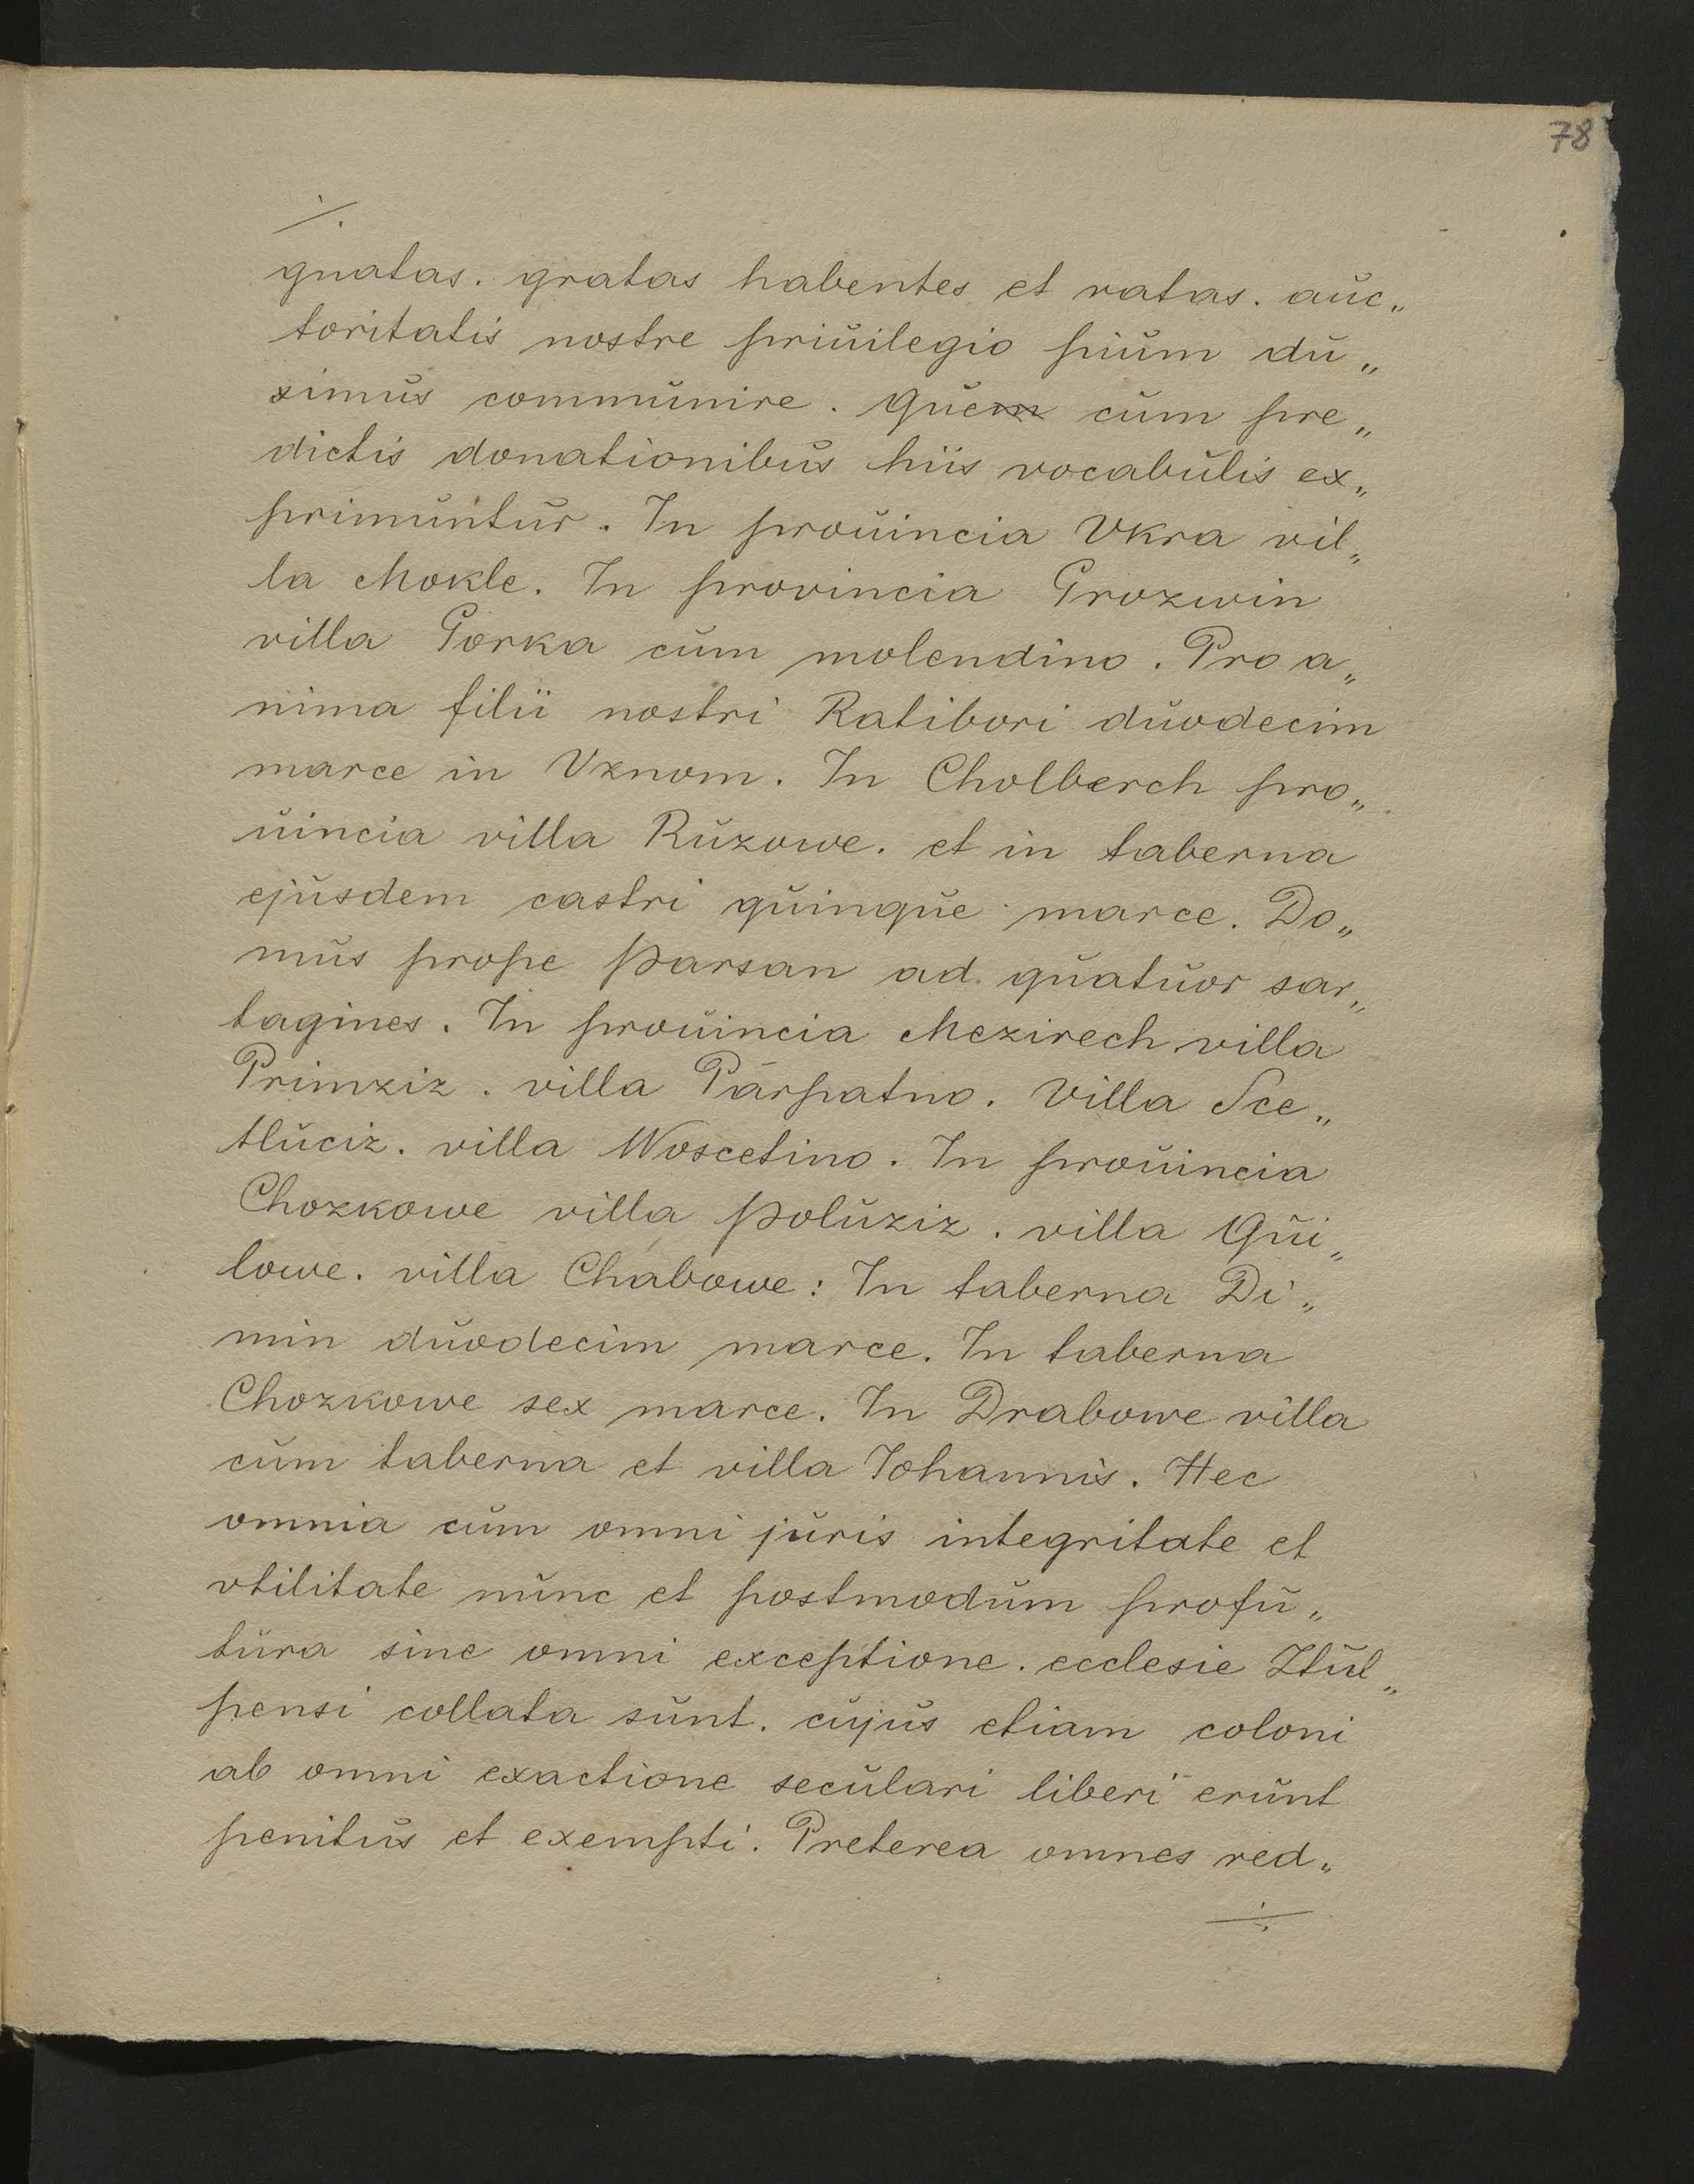 78
./.
gnatas. gratas habentes et ratas. auc„
toritatis nostre priuilegio pium du„
ximus communire. Quem cum pre„
dictis donationibus hiis vocabulis ex„
primuntur. In prouincia Vkra vil„
la Mokle. In provincia Grozwin
villa Gorka cum molendino. Pro a„
nima filii nostri Ratibori duodecim
marce in Vznom. In Cholberch pro„
uincia villa Ruzowe. et in taberna
ejusdem castri quinque marce. Do„
mus prope Parsan ad quatuor sar„
tagines. In prouincia Mezirech villa
Primziz. villa Parpatno. Villa Sce„
tluciz. villa Woscetino. In prouincia
Chozkowe villa Poluziz. villa Qui„
lowe. villa Chabowe: In taberna Di„
min duodecim marce. In taberna
Chozkowe sex marce. In Drabowe villa
cum taberna et villa Iohannis. Hec
omnia cum omni juris integritate et
vtilitate nunc et postmodum profu„
tura sine omni exceptione. ecclesie Ztul„
pensi collata sunt. cujus etiam coloni
ab omni exactione seculari liberi erunt
penitus et exempti. Preterea omnes red„
./.